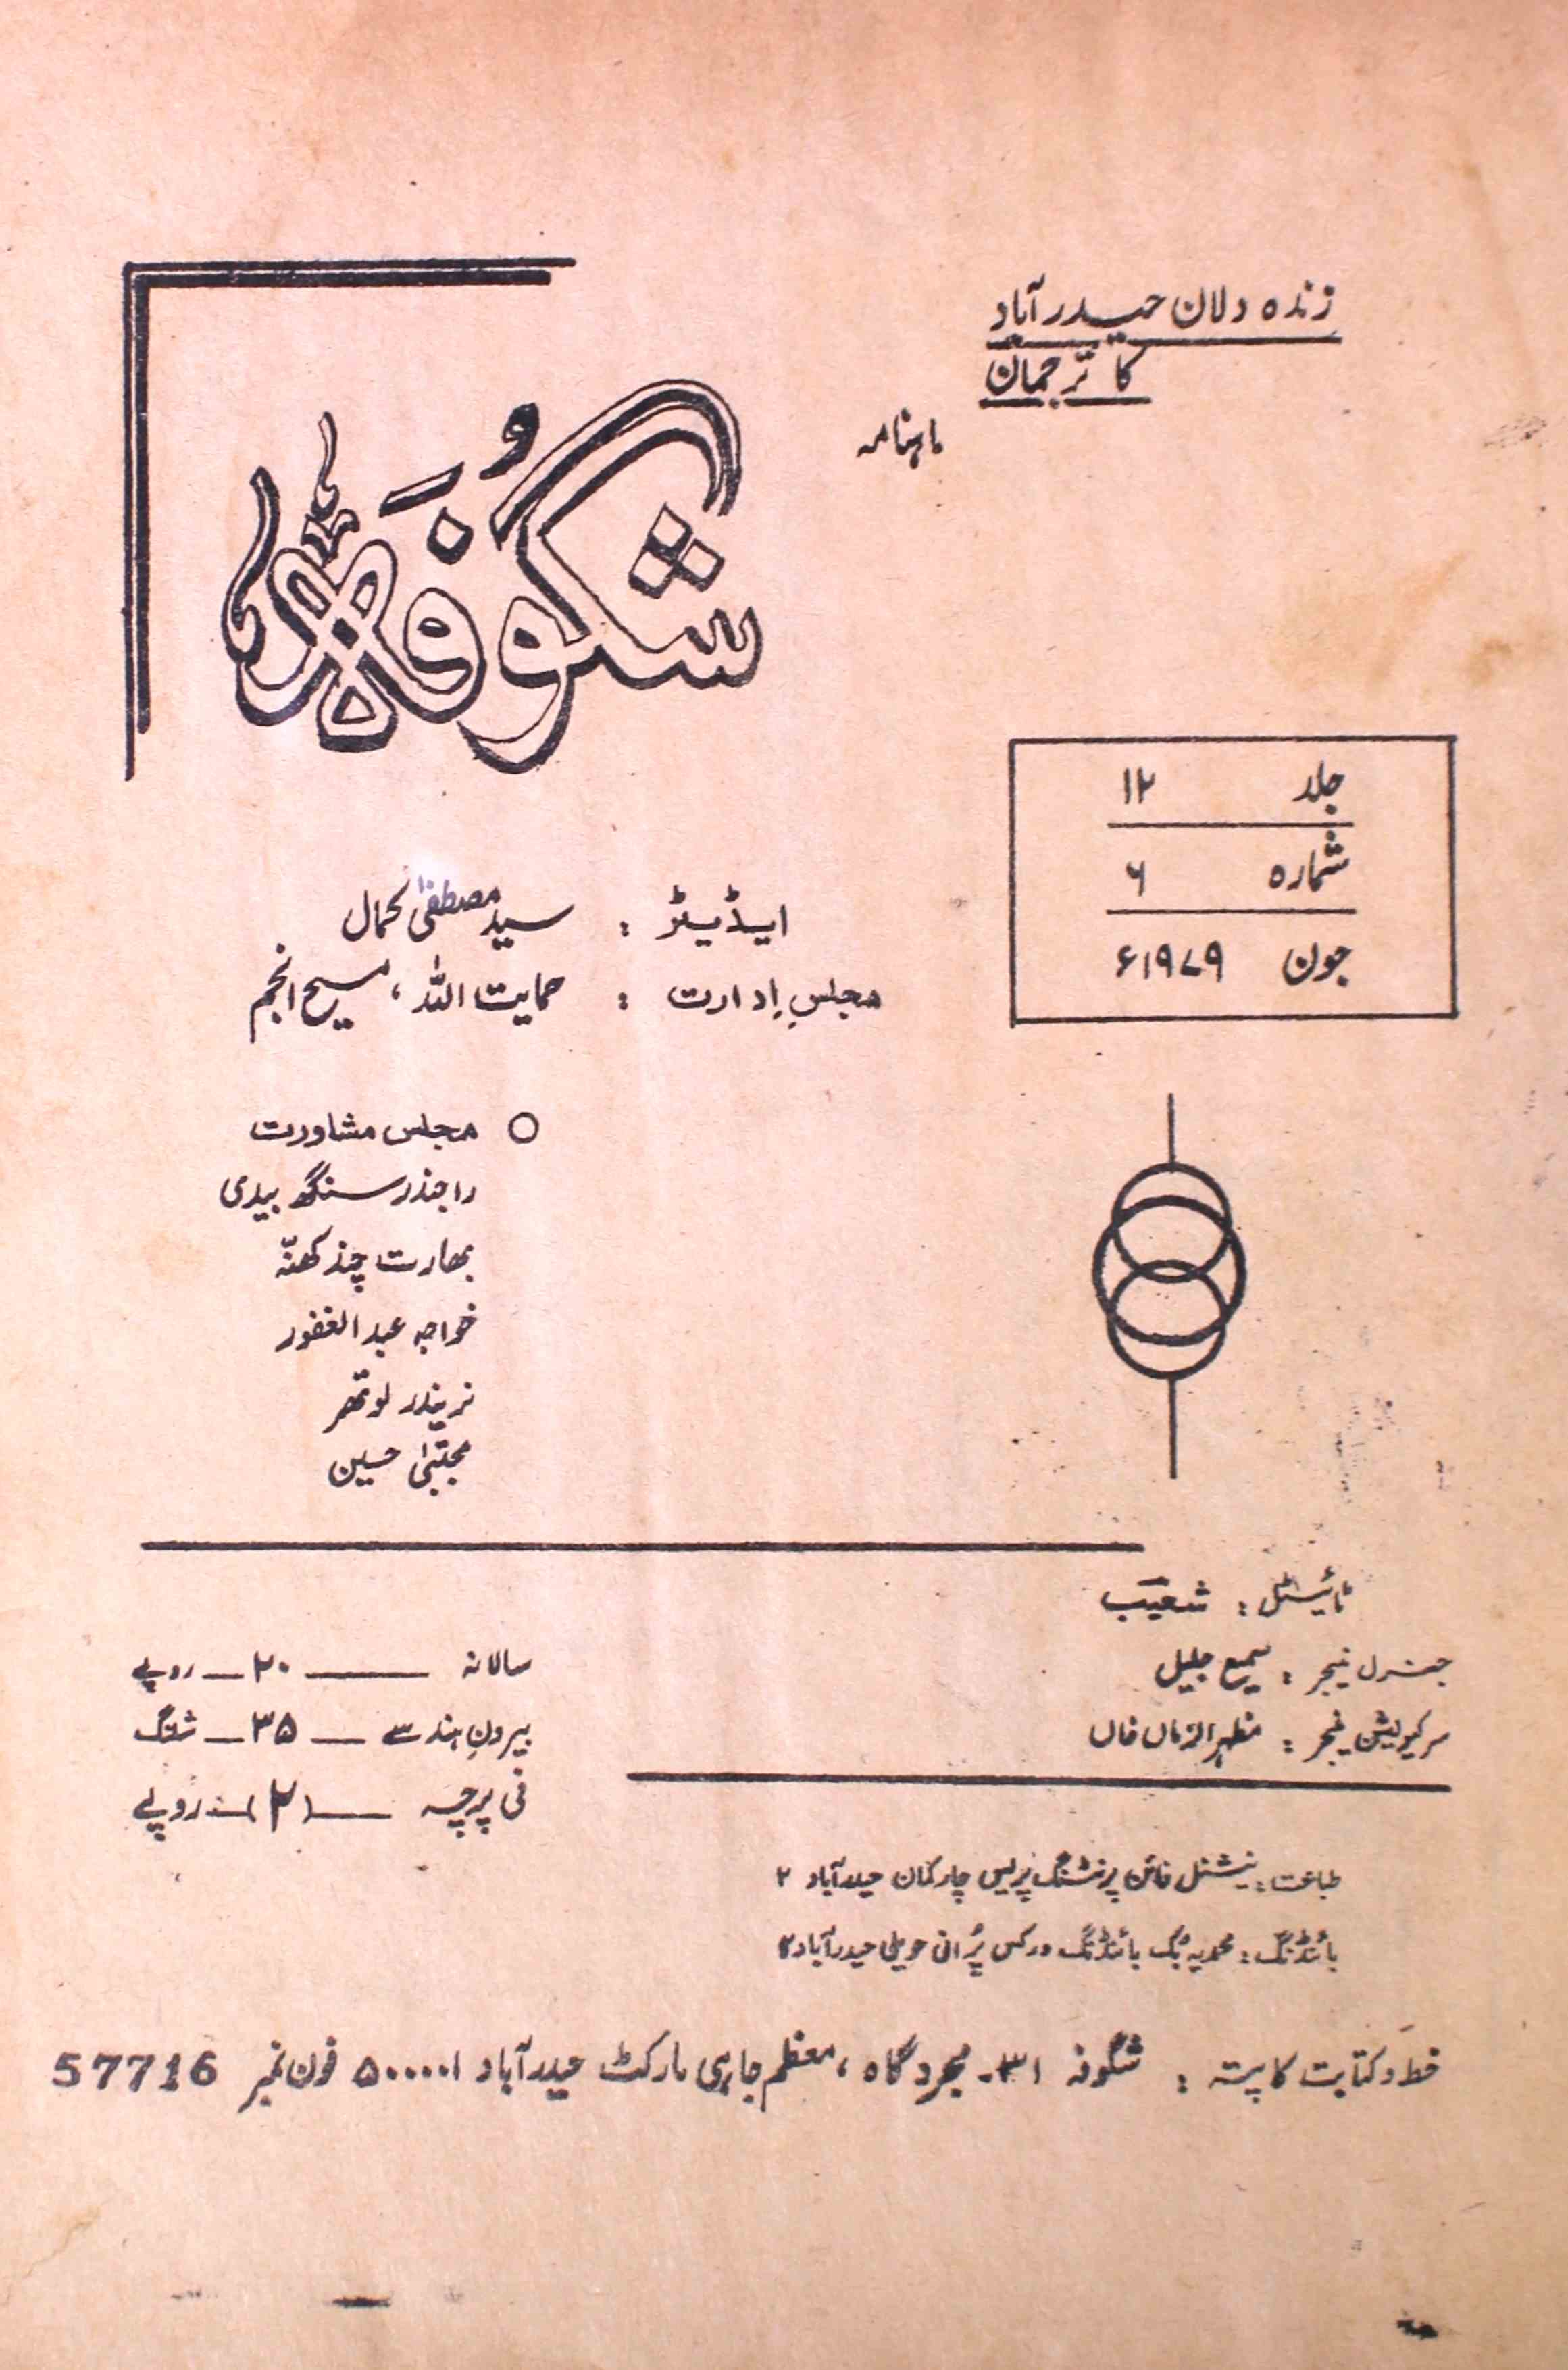 زندہ دلان حیدرآباد
کا ترجمان
ماہنامہ
شگوفہ
جلد ۱۲
شمارہ ۶
جون ۱۹۷۹ء
ایڈیٹر : سید مصطفیٰ کمال
مجلسِ اِدارت : حمایت اللہ، مسیح انجم
مجلس مشاورت
راجندر سنگھ بیدی
بھارت چند کھنّہ
خواجہ عبدالغفور
نریندر لوتھر
مجتبیٰ حسین
ٹائیٹل : شعیب
جنرل منیجر : سمیع جلیل
سرکیولیشن منیجر : مظہرالزماں خاں
سالانہ ــــ ۲۰ ــ روپے
بیرونِ ہند سے ــ ۳۵ ــ شلنگ
فی پرچہ ــــ (۲) ــ روپے
طباعت : نیشنل فائن پرنٹنگ پریس چارکمان حیدرآباد ۲
بائنڈنگ : محمدیہ بُک بائنڈنگ ورکس پُرانی حویلی حیدرآباد ۲
خط و کتابت کا پتہ : شگوفہ ۳۱۔ مجردگاہ، معظم جاہی مارکٹ حیدرآباد ۵۰۰۰۰۱ فون نمبر 57716